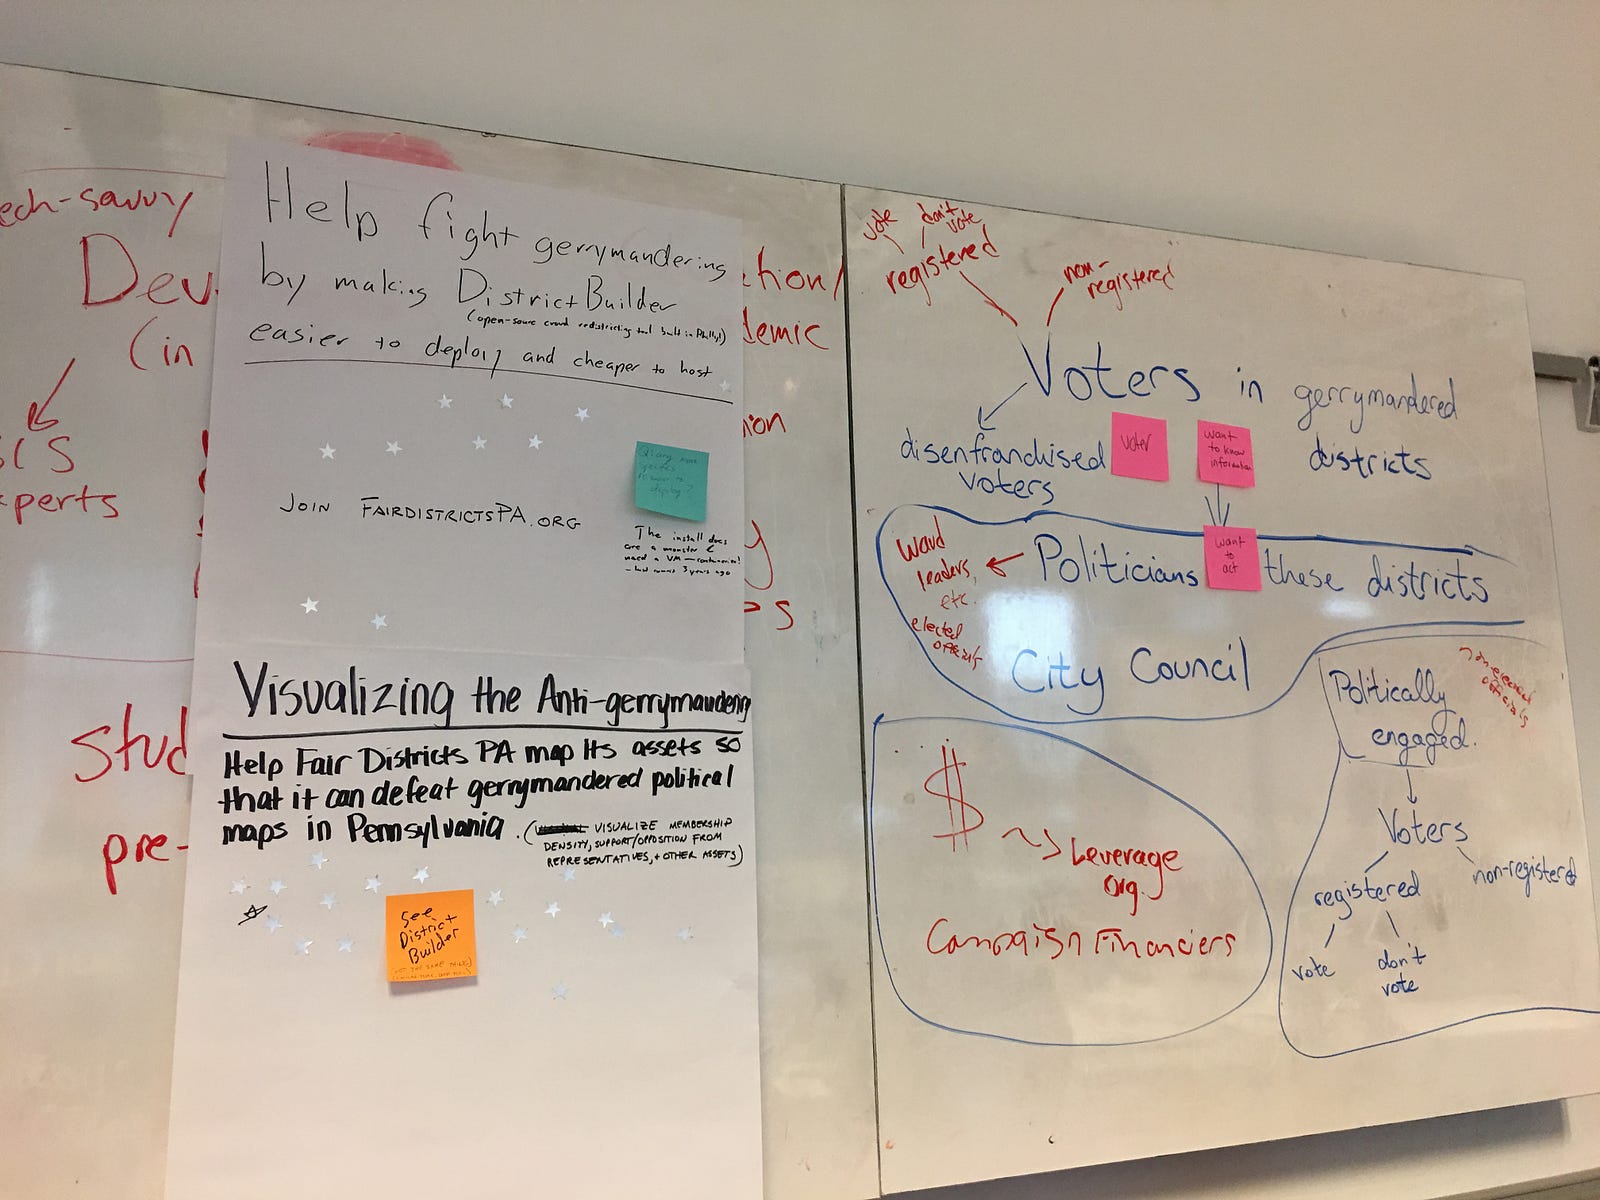 ech-savvy
Dev
(in
perts
stud
pre-
Help fight gerrymandering
by making DistrictBuilder
(open-source crowd redistricting tool built in Philly!)
easier to deploy and cheaper to host
JOIN FAIRDISTRICTSPA.ORG
deploy?
The install docs
are a monster &
need a VM
3 years ago
Visualizing the Anti-gerrymandering
Help Fair Districts PA map its assets so
that it can defeat gerrymandered political
maps in Pennsylvania.
( VISUALIZE MEMBERSHIP
DENSITY, SUPPORT/OPPOSITION FROM
REPRESENTATIVES, + OTHER ASSETS)
See
District
Builder
tion/
demic
vote
don't
vote
registered
non-
registered
Voters in gerrymandered
districts
disenfranchised
voters
voter
want
to know
information
want
to
act
Politicians these districts
Ward
leaders,
etc.
elected
officials
City Council
Politically
engaged.
officials
Voters
registered
non-registered
vote
don't
vote
$
Leverage
org.
Campaign Financiers